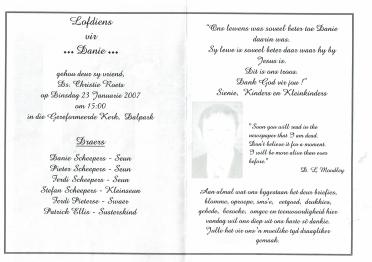 Lofdiens
vir
... Danie ...
gehou deur sy vriend,
Ds. Christie Roets
op Dinsdag 23 Januarie 2007
om 15:00
in die Gereformeerde Kerk, Dalpark
Draers
Danie Scheepers - Seun
Pieter Scheepers - Seun
Ferdi Scheepers - Seun
Stefan Scheepers - Kleinseun
Ferdi Pieterse - Swaer
Patrick Ellis - Susterskind
"Ons lewens was soveel beter toe Danie
daarin was.
Sy lewe is soveel beter daar waar hy by
Jesus is.
Dit is ons troos.
Dank God vir jou!"
Sienie, Kinders en Kleinkinders
"Soon you will read in the
newspaper that I am dead.
Don't believe it for a moment.
I will be more alive than ever
before."
D. L. Moodley
Aan almal wat ons bygestaan het deur briefies,
blomme, oproepe, sms'e, eetgoed, drukkies,
gebede, besoeke, omgee en teenwoordigheid hier
vandag wil ons diep uit ons harte sê dankie.
Julle het vir ons 'n moeilike tyd draagliker
gemaak.